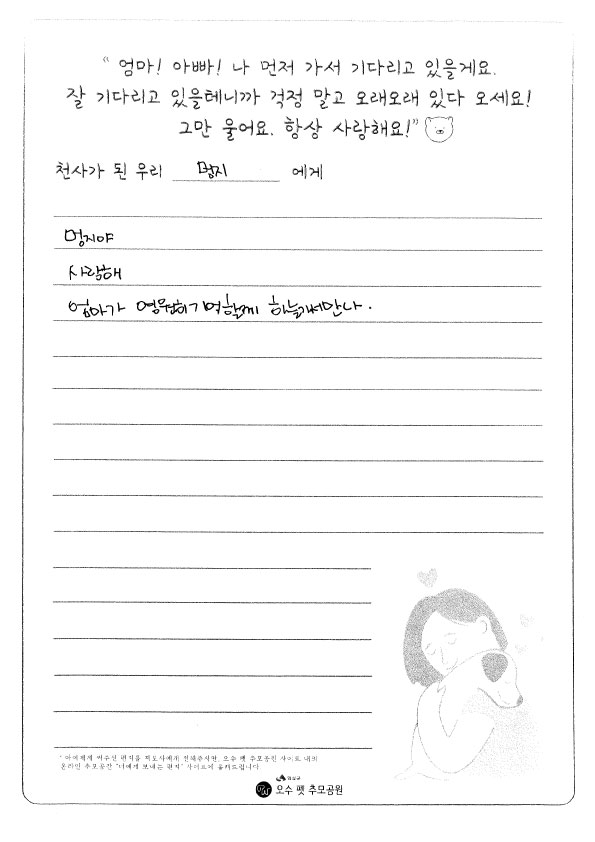 “ 엄마! 아빠! 나 먼저 가서 기다리고 있을게요.
잘 기다리고 있을테니까 걱정 말고 오래오래 있다 오세요!
그만 울어요. 항상 사랑해요!”
천사가 된 우리 멍지 에게
멍지야
사랑해
엄마가 영원히기억할께 하늘에서만나.
* 아이에게 써주신 편지를 지도사에게 전해주시면, 오수 펫 추모공원 사이트 내의
온라인 추모공간 "너에게 보내는 편지" 사이트에 올려드립니다.
임실군
오수 펫 추모공원